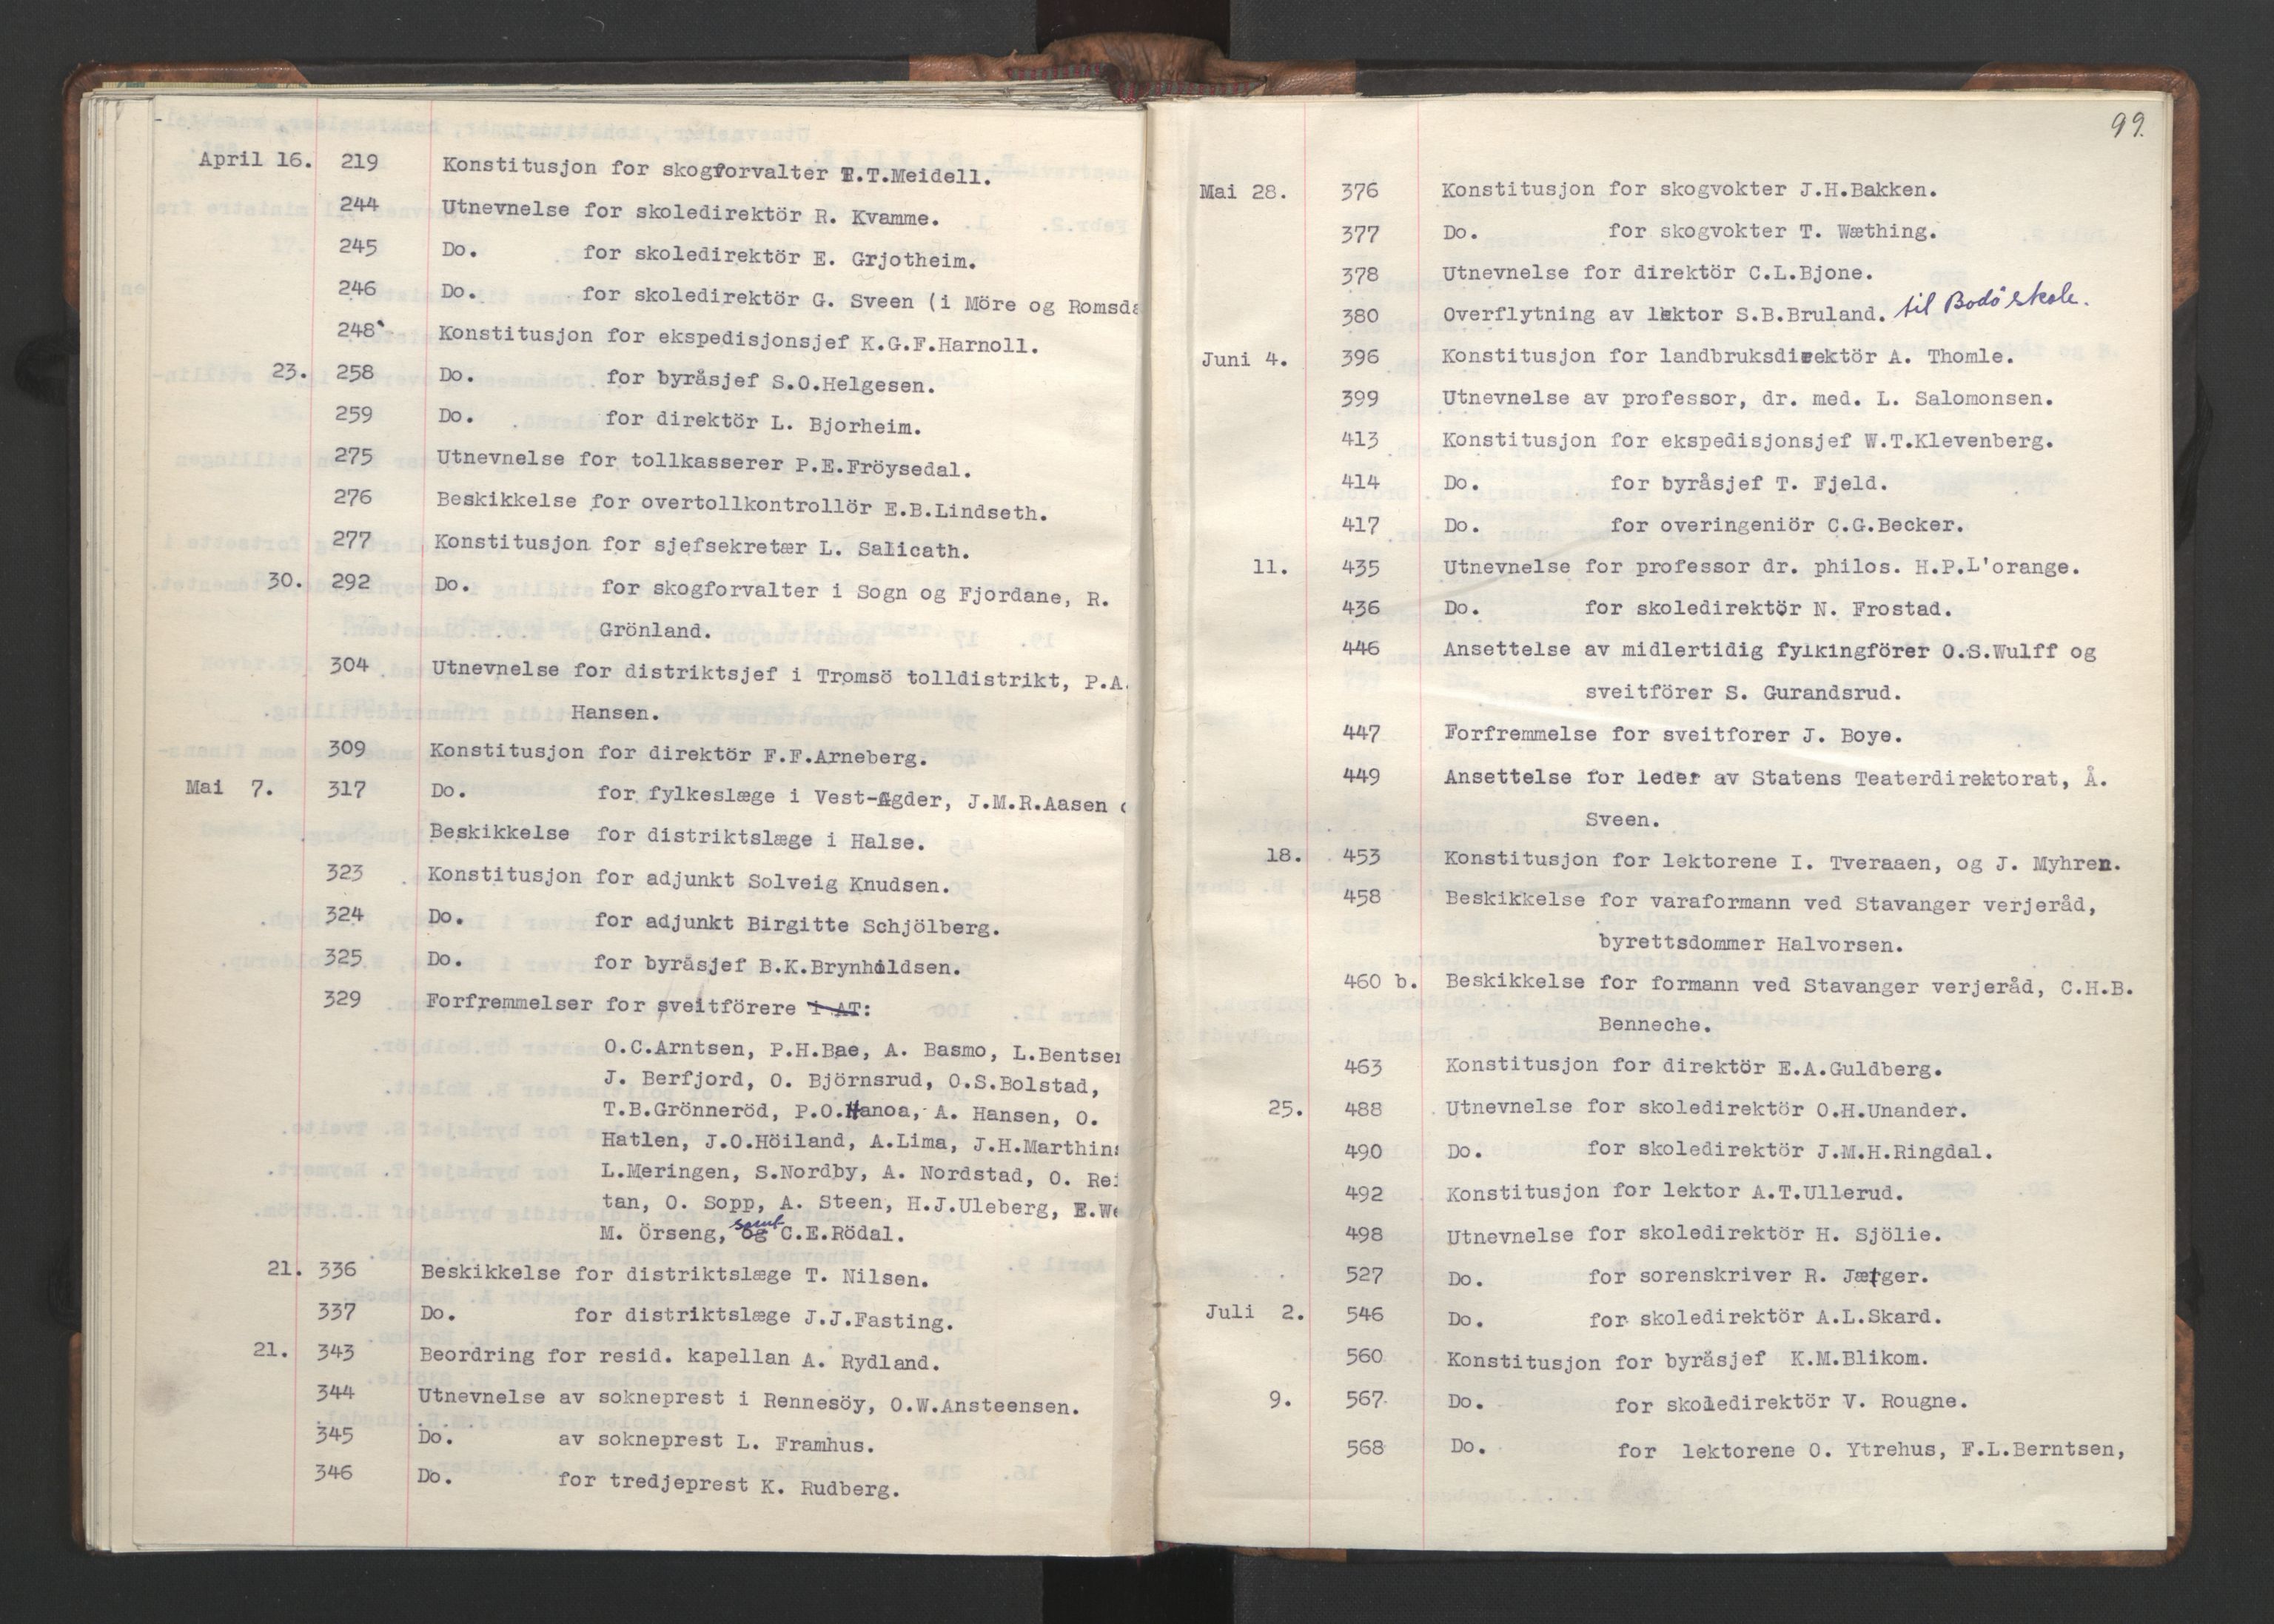 April 16. 219 Konstitusjon for skogforvalter T.T.Meidell.
244 Utnevnelse for skoledirektör R. Kvamme.
245 Do. for skoledirektör E. Grjotheim.
246 Do. for skoledirektör G. Sveen (i Möre og Romsda
248 Konstitusjon for ekspedisjonsjef K.G.F.Harnoll.
23. 258 Do. for byråsjef S.O.Helgesen.
259 Do. for direktör L. Bjorheim.
275 Utnevnelse for tollkasserer P.E.Fröysedal.
276 Beskikkelse for overtollkontrollör E.B.Lindseth.
277 Konstitusjon for sjefsekretær L. Salicath.
30. 292 Do. for skogforvalter i Sogn og Fjordane, R.
Grönland.
304 Utnevnelse for distriktsjef i Tromsö tolldistrikt, P.A.
Hansen.
309 Konstitusjon for direktör F.F.Arneberg.
Mai 7. 317 Do. for fylkeslæge i Vest-Agder, J.M.R.Aasen
Beskikkelse for distriktslæge i Halse.
323 Konstitusjon for adjunkt Solveig Knudsen.
324 Do. for adjunkt Birgitte Schjölberg.
325 Do. for byråsjef B.K.Brynhildsen.
329 Forfremmelser for sveitförere i AT:
O.C.Arntsen, P.H.Bae, A. Basmo, L.Bentsen
J. Berfjord, O. Björnsrud, O.S.Bolstad,
T.B.Grönneröd, P.O.Hanoa, A. Hansen, O.
Hatlen, J.O.Höiland, A.Lima, J.H.Marthins
L.Meringen, S.Nordby, A. Nordstad, O. Rei
tan, O. Sopp, A. Steen, H.J.Uleberg, E.We
M. Örseng, og samt C.E.Rödal.
21. 336 Beskikkelse for distriktslæge T. Nilsen.
337 Do. for distriktslæge J.J.Fasting.
21. 343 Beordring for resid. kapellan A. Rydland.
344 Utnevnelse av sokneprest i Rennesöy, O.W.Ansteensen.
345 Do. av sokneprest L. Framhus.
346 Do. for tredjeprest K. Rudberg.
99.
Mai 28. 376 Konstitusjon for skogvokter J.H.Bakken.
377 Do. for skogvokter T. Wæthing.
378 Utnevnelse for direktör C.L.Bjone.
380 Overflytning av lektor S.B.Bruland. til Bodö skole.
Juni 4. 396 Konstitusjon for landbruksdirektör A. Thomle.
399 Utnevnelse av professor, dr. med. L. Salomonsen.
413 Konstitusjon for ekspedisjonsjef W.T.Klevenberg.
414 Do. for byråsjef T. Fjeld.
417 Do. for overingeniör C.G.Becker.
11. 435 Utnevnelse for professor dr. philos. H.P.L'orange.
436 Do. for skoledirektör N. Frostad.
446 Ansettelse av midlertidig fylkingförer O.S.Wulff og
sveitförer S. Gurandsrud.
447 Forfremmelse for sveitforer J. Boye.
449 Ansettelse for leder av Statens Teaterdirektorat, Å.
Sveen.
18. 453 Konstitusjon for lektorene I. Tveraaen, og J. Myhren.
458 Beskikkelse for varaformann ved Stavanger verjeråd,
byrettsdommer Halvorsen.
460 b. Beskikkelse for formann ved Stavanger verjeråd, C.H.B.
Benneche.
463 Konstitusjon for direktör E.A.Guldberg.
25. 488 Utnevnelse for skoledirektör O.H.Unander.
490 Do. for skoledirektör J.M.H.Ringdal.
492 Konstitusjon for lektor A.T.Ullerud.
498 Utnevnelse for skoledirektör H. Sjölie.
527 Do. for sorenskriver R. Jætger.
Juli 2. 546 Do. for skoledirektör A.L.Skard.
560 Konstitusjon for byråsjef K.M.Blikom.
9. 567 Do. for skoledirektör V. Rougne.
568 Do. for lektorene O. Ytrehus, F.L.Berntsen,